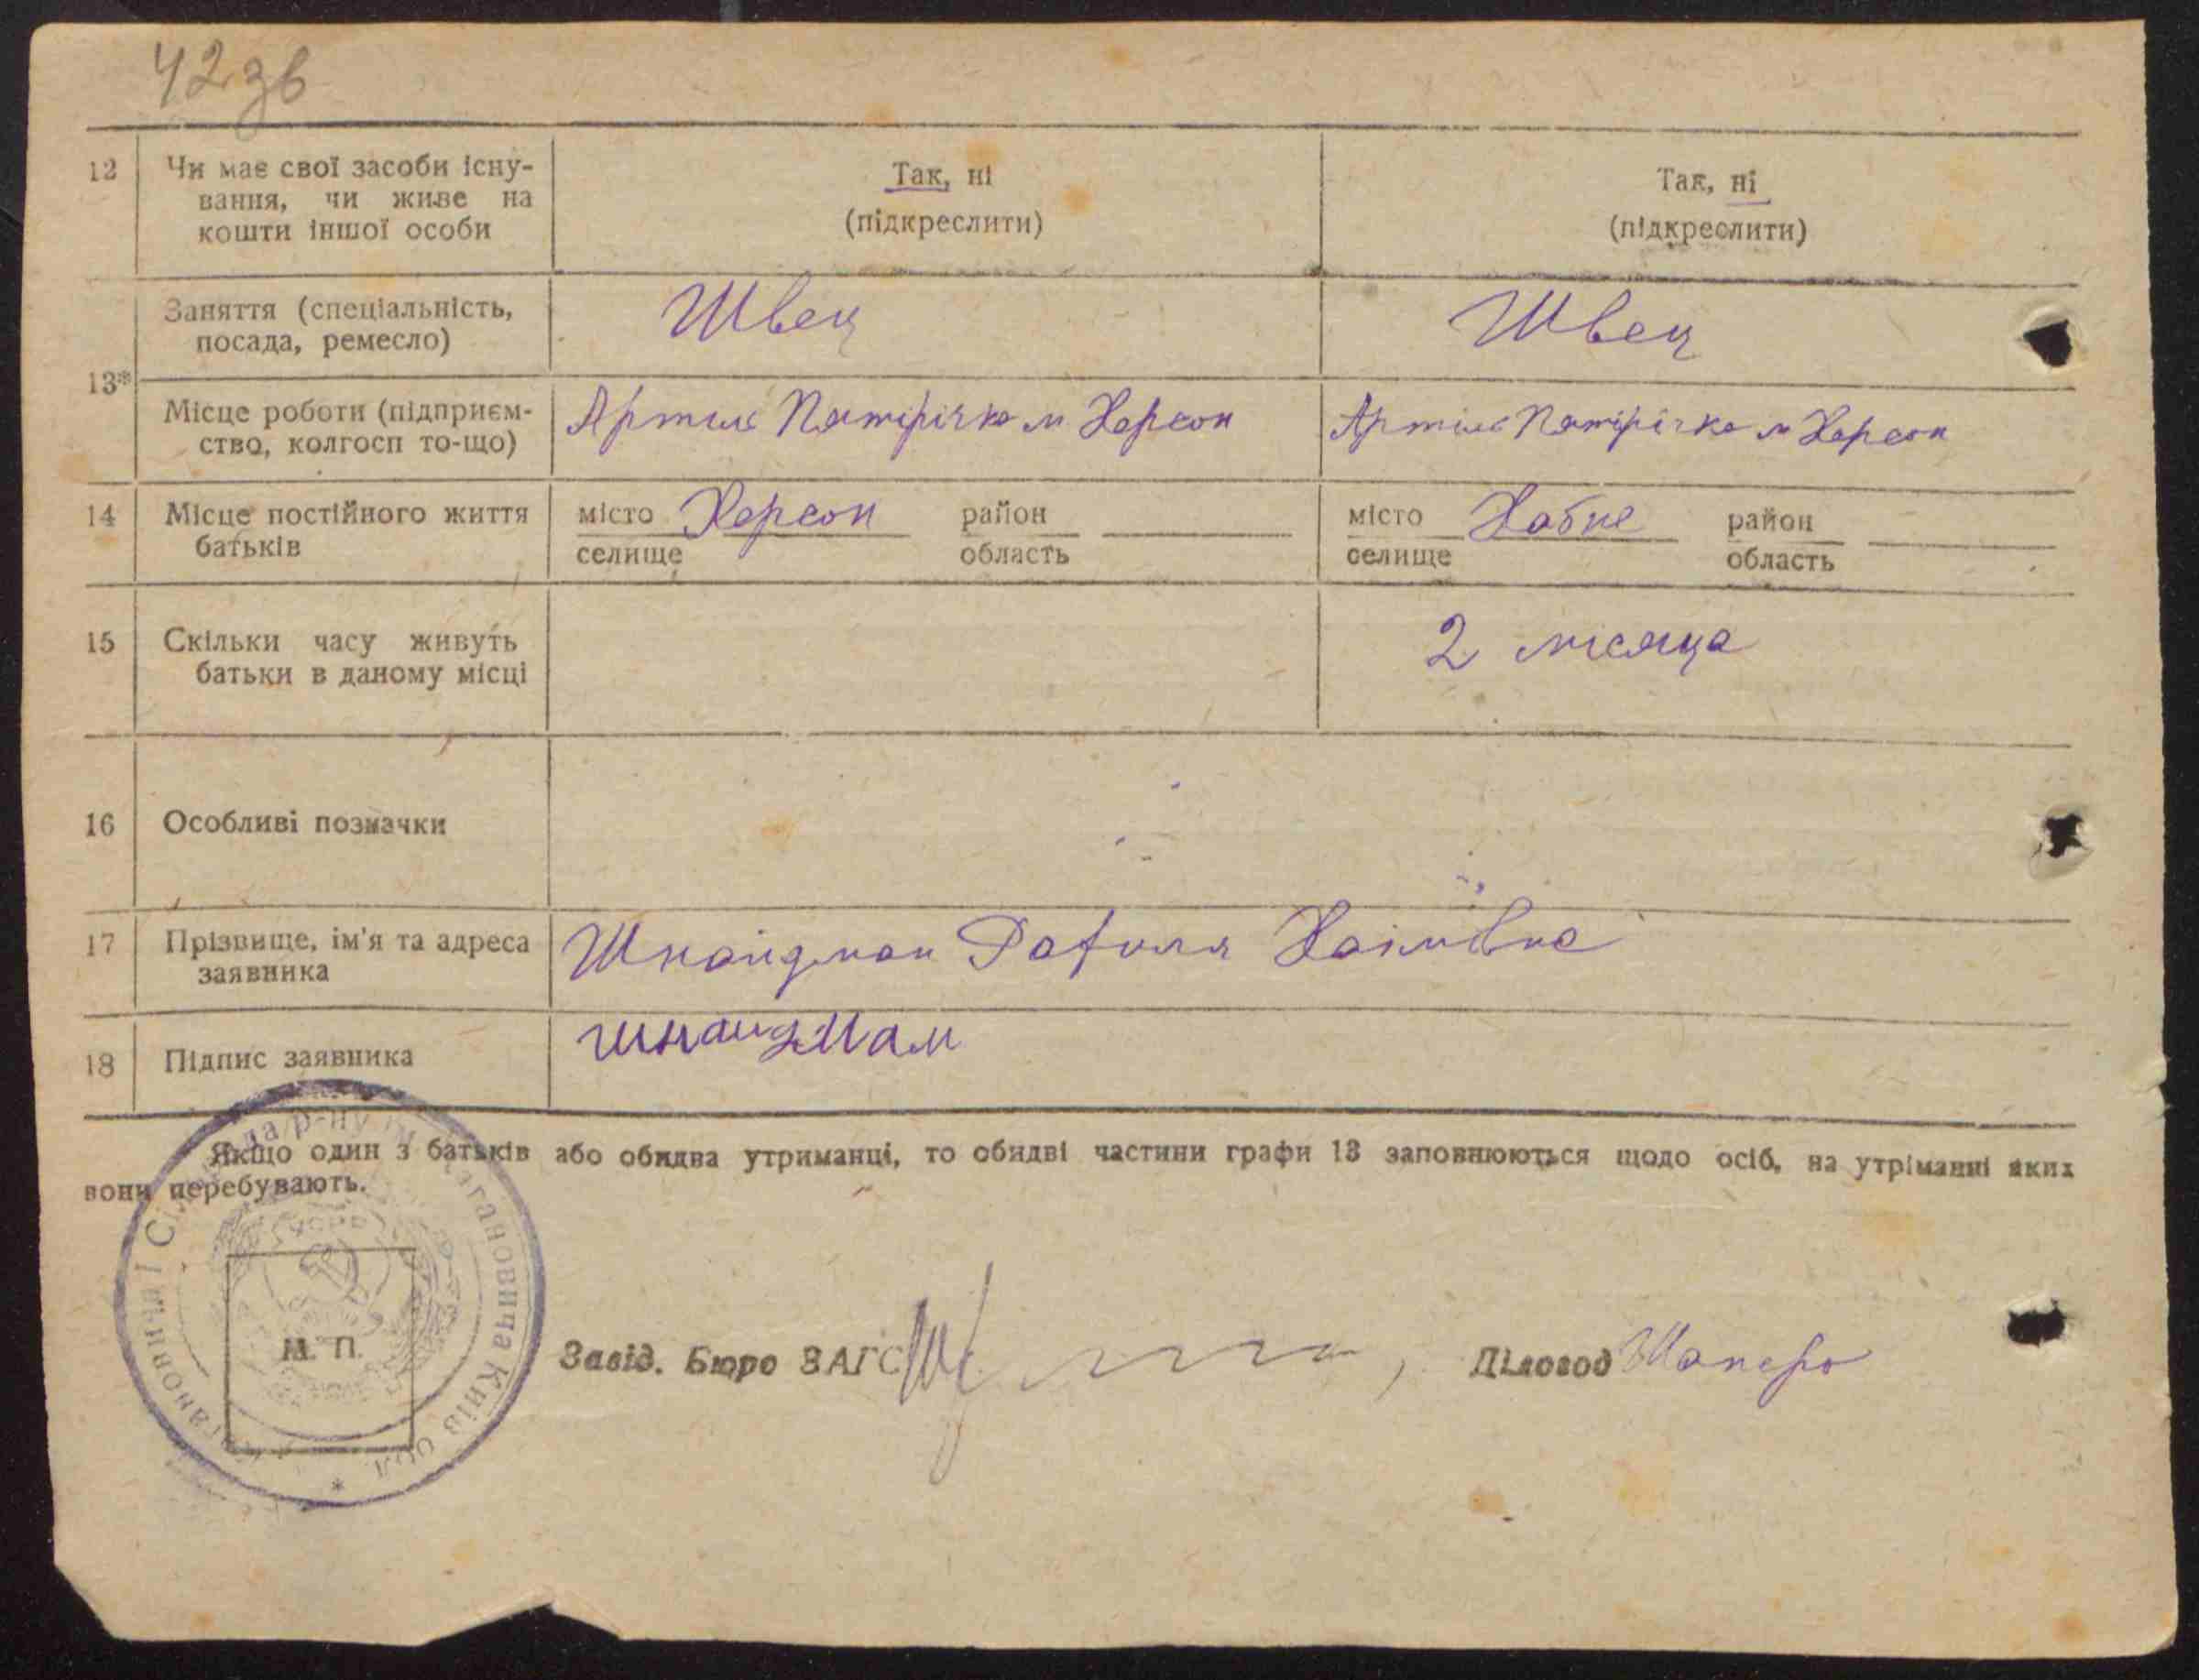 42 зв
12 Чи має свої засоби існу-
вання, чи живе на
кошти іншої особи
Так, ні
(підкреслити)
Так, ні
(підкреслити)
13*
Заняття (спеціальність,
посада, ремесло)
Швец
Швец
Місце роботи (підприєм-
ство, колгосп то-що)
Артиль Пятирічка м Херсон
Артіль Пятирічка м Херсон
14 Місце постійного життя
батьків
місто Херсон район
селище область
місто Хабне район
селище область
15 Скільки часу живуть
батьки в даному місці
2 місяца
16 Особливі позначки
17 Прізвище, ім'я та адреса
заявника
Шнайдман Рахиля Хаімівна
18 Підпис заявника
шнайдман
Якщо один з батьків або обидва утриманці, то обидві частини графи 13 заповнюються щодо осіб, на утріманні яких
вони перебувають.
р-ну ім Кагановича Київ обл
Кагановича І
УСРР
М. П.
Завід. Бюро ЗАГС
Діловод Шапіро